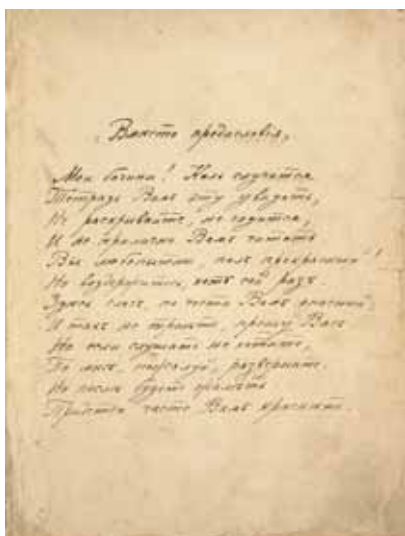 Вместо предисловія,
Мои богини! Коль случится
Тетрадь Вамъ эту увидѣть,
Не раскрывайте, не годится,
И не прилично Вамъ читать
Вы любопытны, полъ прекрасный!
Но воздержитесь хоть сей разъ.
Здѣсь слогъ, по чести Вамъ опасный,
И такъ не троньте, прошу Васъ
Но коли слушать не хотите,
То мнѣ, пожалуй, разверните.
Но после будете
Придется часто Вамъ краснѣть.